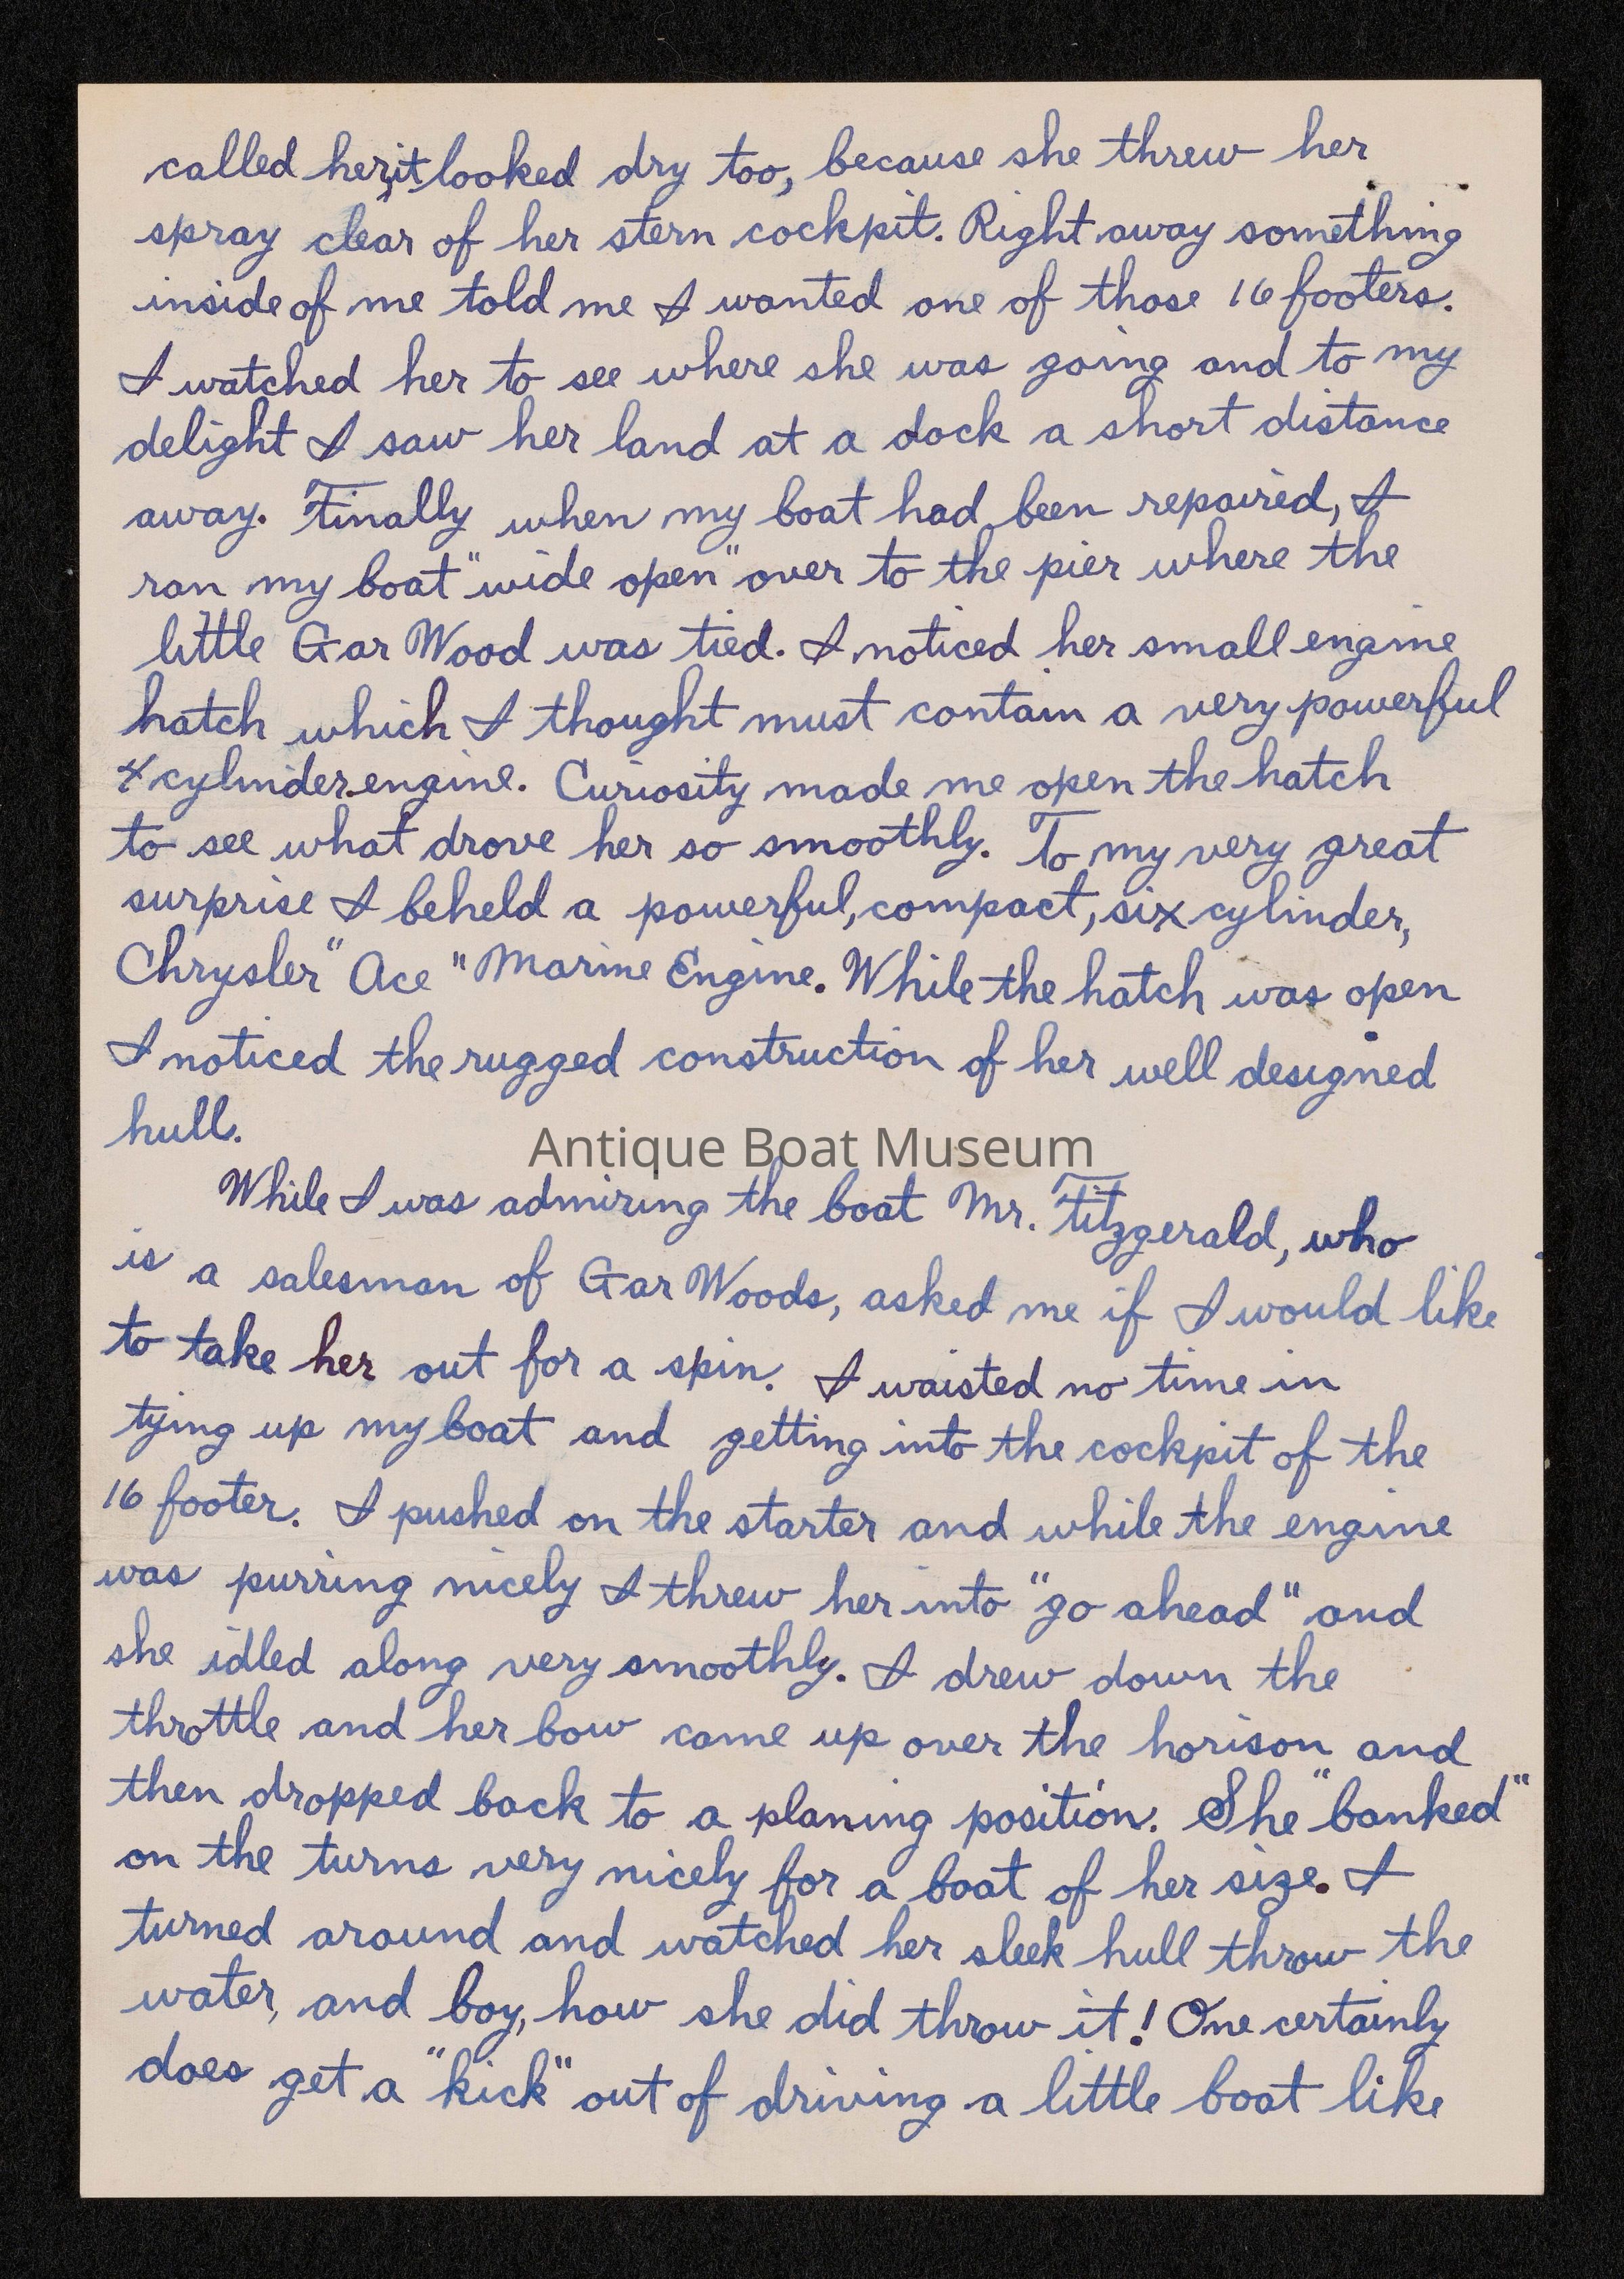 called her, it looked dry too, because she threw her
spray clear of her stern cockpit. Right away something
inside of me told me I wanted one of those 16 footers.
I watched her to see where she was going and to my
delight I saw her land at a dock a short distance
away. Finally when my boat had been repaired, I
ran my boat "wide open" over to the pier where the
little Gar Wood was tied. I noticed her small engine
hatch which I thought must contain a very powerful
4 cylinder engine. Curiosity made me open the hatch
to see what drove her so smoothly. To my very great
surprise I beheld a powerful, compact, six cylinder,
Chrysler "Ace" Marine Engine. While the hatch was open
I noticed the rugged construction of her well designed
hull.
Antique Boat Museum
While I was admiring the boat Mr. Fitzgerald, who
is a salesman of Gar Woods, asked me if I would like
to take her out for a spin. I waisted no time in
tying up my boat and getting into the cockpit of the
16 footer. I pushed on the starter and while the engine
was purring nicely I threw her into "go ahead" and
she idled along very smoothly. I drew down the
throttle and her bow came up over the horison and
then dropped back to a planing position. She "banked"
on the turns very nicely for a boat of her size. I
turned around and watched her sleek hull throw the
water, and boy, how she did throw it! One certainly
does get a "kick" out of driving a little boat like